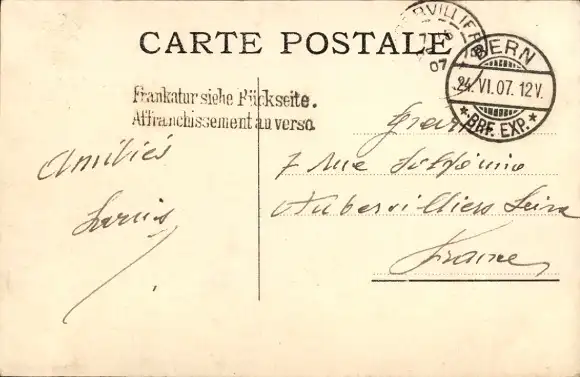 CARTE POSTALE
BERN
24. VI. 07. 12 V.
* BRF. EXP. *
07
Frankatur siehe Rückseite.
Affranchissement au verso.
Amitiés
7 Rue
Aubervilliers Seine
France